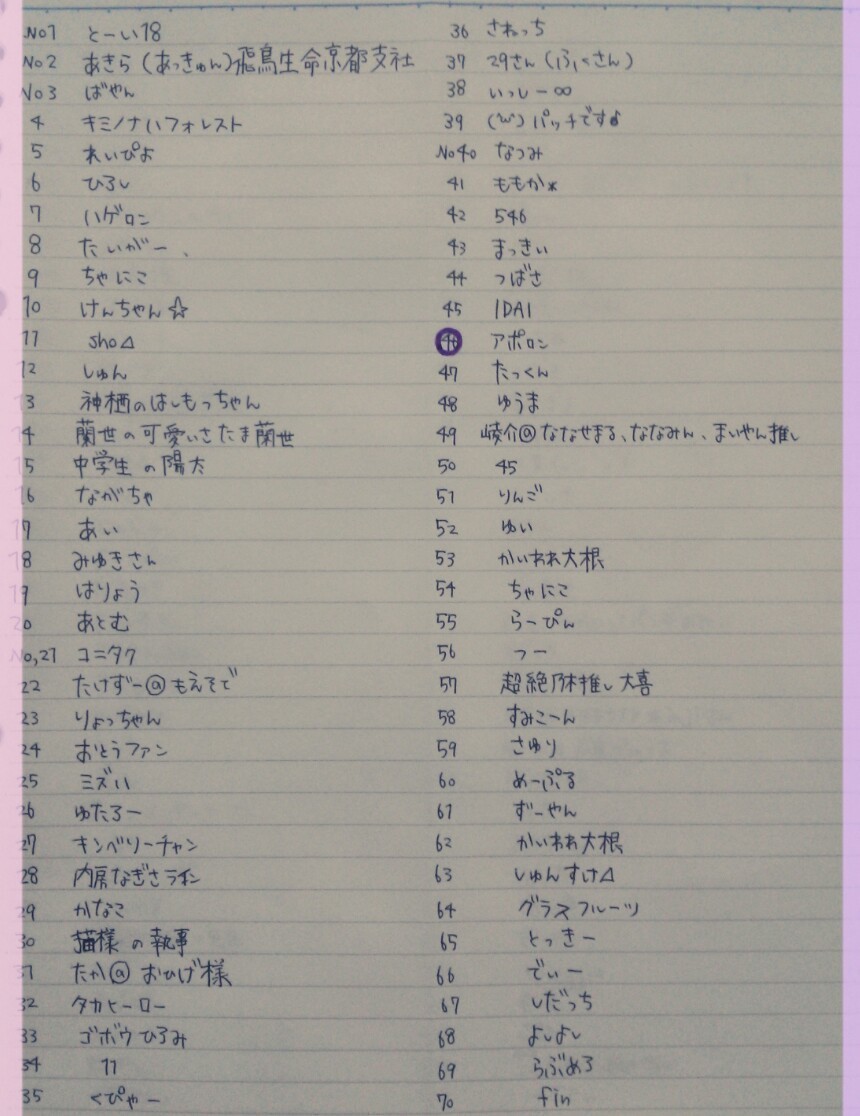 No1 とーい18
No2 あきら(あっきゅん)飛鳥生命京都支社
No3 ばやん
4 キミノナハフォレスト
5 れいぴよ
6 ひろし
7 ハゲロン
8 たいがー、
9 ちゃにこ
10 けんちゃん☆
11 sho△
12 しゅん
13 神栖のはしもっちゃん
14 蘭世の可愛いさたま蘭世
15 中学生の陽太
16 ながちゃ
17 あい
18 みゆきさん
19 はりょう
20 あとむ
No,21 コニタク
22 たけずー@もえそで
23 りょっちゃん
24 おとうファン
25 ミズハ
26 ゆたろー
27 キンベリーチャン
28 内房なぎさライン
29 かなこ
30 猫様の執事
31 たか@おひげ様
32 タカヒーロー
33 ゴボウひろみ
34 11
35 くぴゃー
36 さねっち
37 29さん(ふくさん)
38 いっしー∞
39 パッチです♪
No40 なつみ
41 ももか*
42 546
43 まっきぃ
44 つばさ
45 IDAI
46 アポロン
47 たっくん
48 ゆうま
49 崚介@ななせまる、ななみん、まいやん推し
50 45
51 りんご
52 ゆい
53 かいわれ大根
54 ちゃにこ
55 らーぴん
56 つー
57 超絶乃木推し大喜
58 すみこーん
59 さゆり
60 めーぷる
61 ずーやん
62 かいわれ大根
63 しゅんすけ△
64 グラスフルーツ
65 とっきー
66 でぃー
67 しだっち
68 よしよし
69 らぶめろ
70 fin